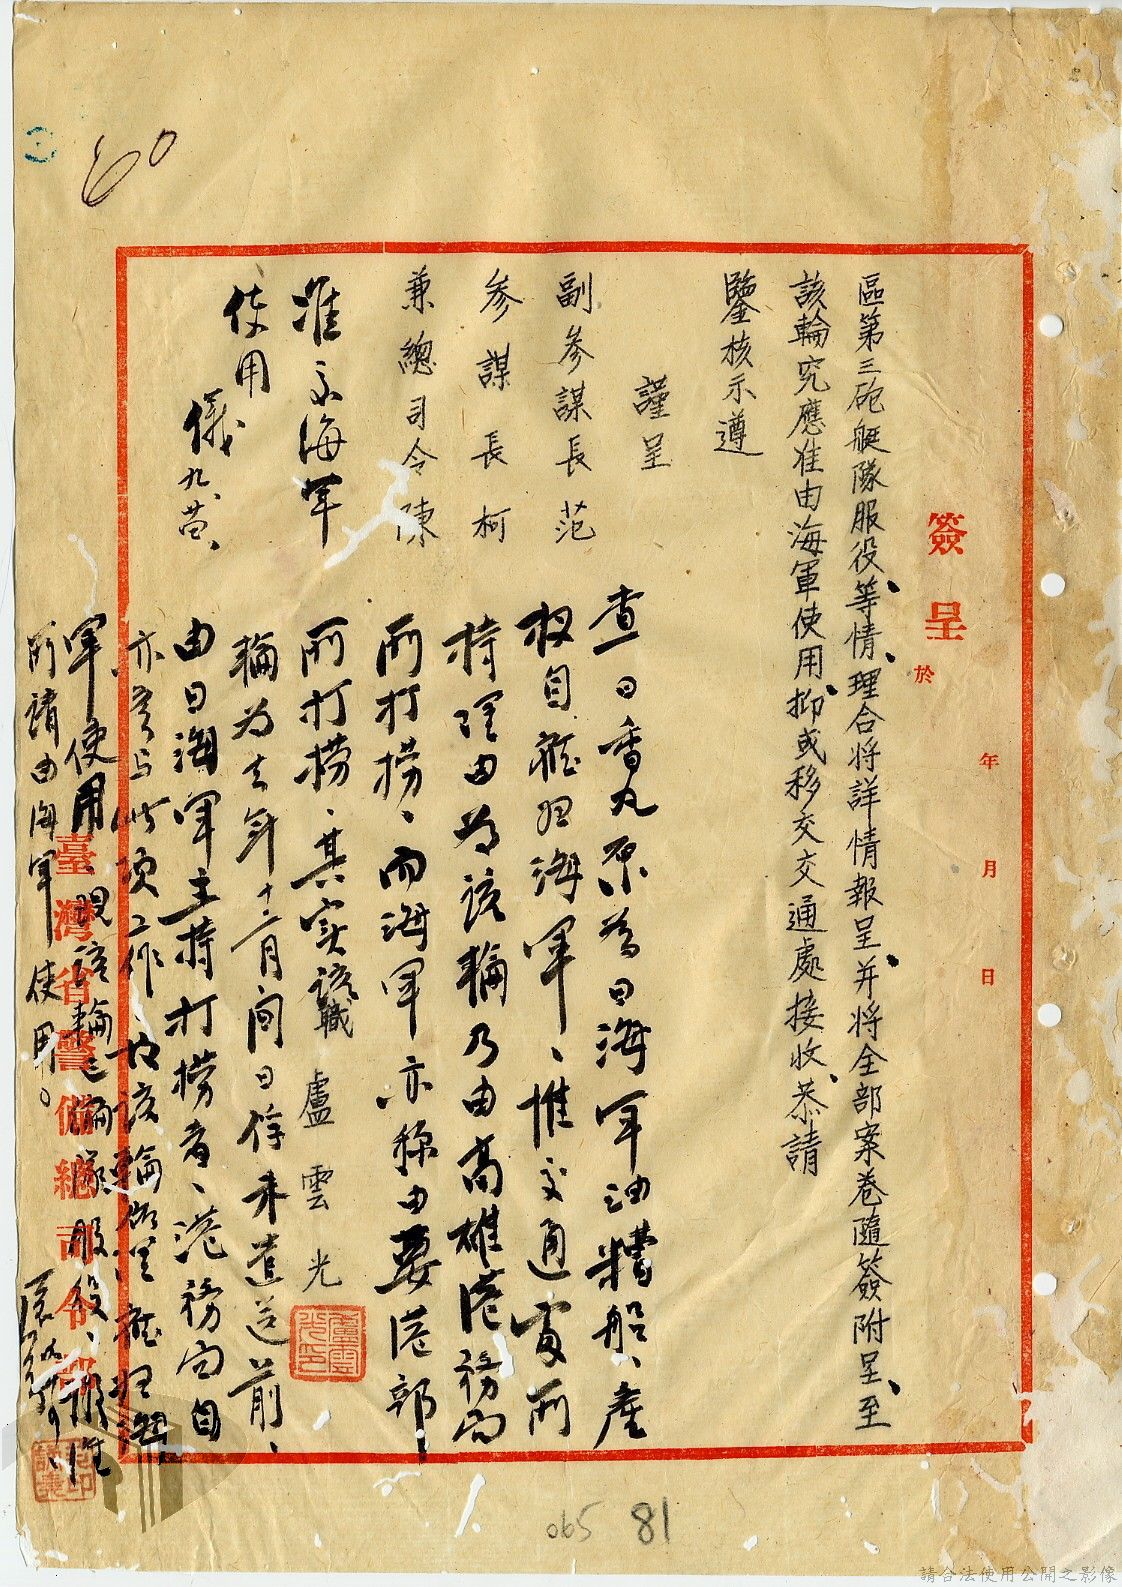 60
簽呈
於 年 月 日
區第三砲艇隊服役、等情、理合將詳情報呈、并將全部案卷隨簽附呈、至
該輪究應准由海軍使用、抑或移交交通處接收、恭請
鑒核示遵
謹呈
副參謀長 范
參謀長 柯
兼總司令 陳
准交海軍
使用
儀 九、廿、
職 盧雲光
盧雲光印
查日香丸原為日海軍油糟船、產
权自應歸海軍、惟交通處所
持理由為該輪乃由高雄港務局
所打捞、而海軍亦称由要港部
所打捞、其实該
輪為去年十二月間日俘未遣送前、
由日海軍主持打捞者、港務局自
亦無与此项工作、故該輪似宜應歸海
軍使用、現該輪已編隊服役、擬准
所請由海軍使用。
臺灣省警備總司令部
065 81
請合法使用公開之影像